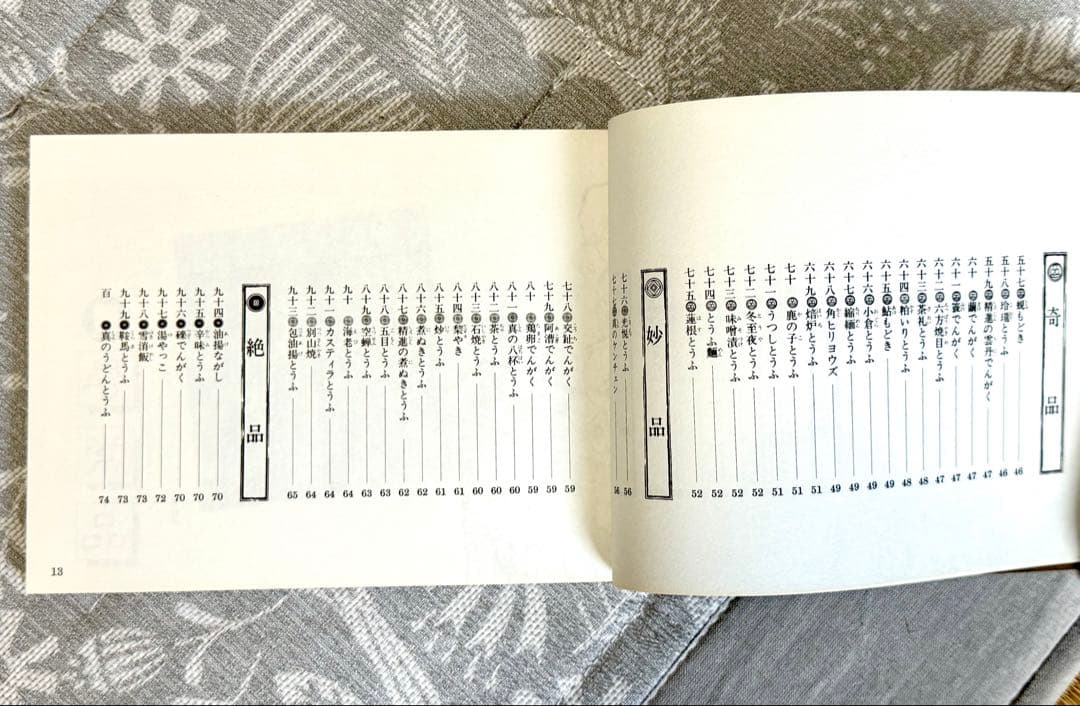 奇品
五十七 蜆もどき 46
五十八 玲瓏とうふ 46
五十九 精進の雲丹でんがく 47
六十 繭でんがく 47
六十一 簔でんがく 47
六十二 六方焼目とうふ 47
六十三 茶礼とうふ 48
六十四 粕いりとうふ 48
六十五 鮎もどき 49
六十六 小倉とうふ 49
六十七 縮緬とうふ 49
六十八 角ヒリヨウズ 49
六十九 焙炉とうふ 51
七十 鹿の子とうふ 51
七十一 うつしとうふ 51
七十二 冬至夜とうふ 52
七十三 味噌漬とうふ 52
七十四 とうふ麺 52
七十五 蓮根とうふ 52
妙品
七十六 光悦とうふ 56
七十七 真のケンチェン 56
七十八 交趾でんがく 59
七十九 阿漕でんがく 59
八十 鶏卵でんがく 59
八十一 真の八杯とうふ 60
八十二 茶とうふ 60
八十三 石焼とうふ 60
八十四 梨やき 61
八十五 炒とうふ 61
八十六 煮ぬきとうふ 62
八十七 精進の煮ぬきとうふ 62
八十八 五目とうふ 63
八十九 空蝉とうふ 63
九十 海老とうふ 64
九十一 カスティラとうふ 64
九十二 別山焼 64
九十三 包油揚とうふ 65
絶品
九十四 油揚ながし 70
九十五 辛味とうふ 70
九十六 礫でんがく 70
九十七 湯やっこ 72
九十八 雪消飯 73
九十九 鞍馬とうふ 73
百 真のうどんとうふ 74
13